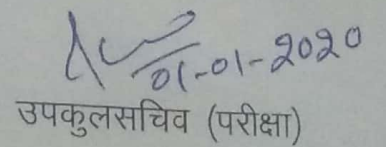 01-01-2020
उपकुलसचिव (परीक्षा)